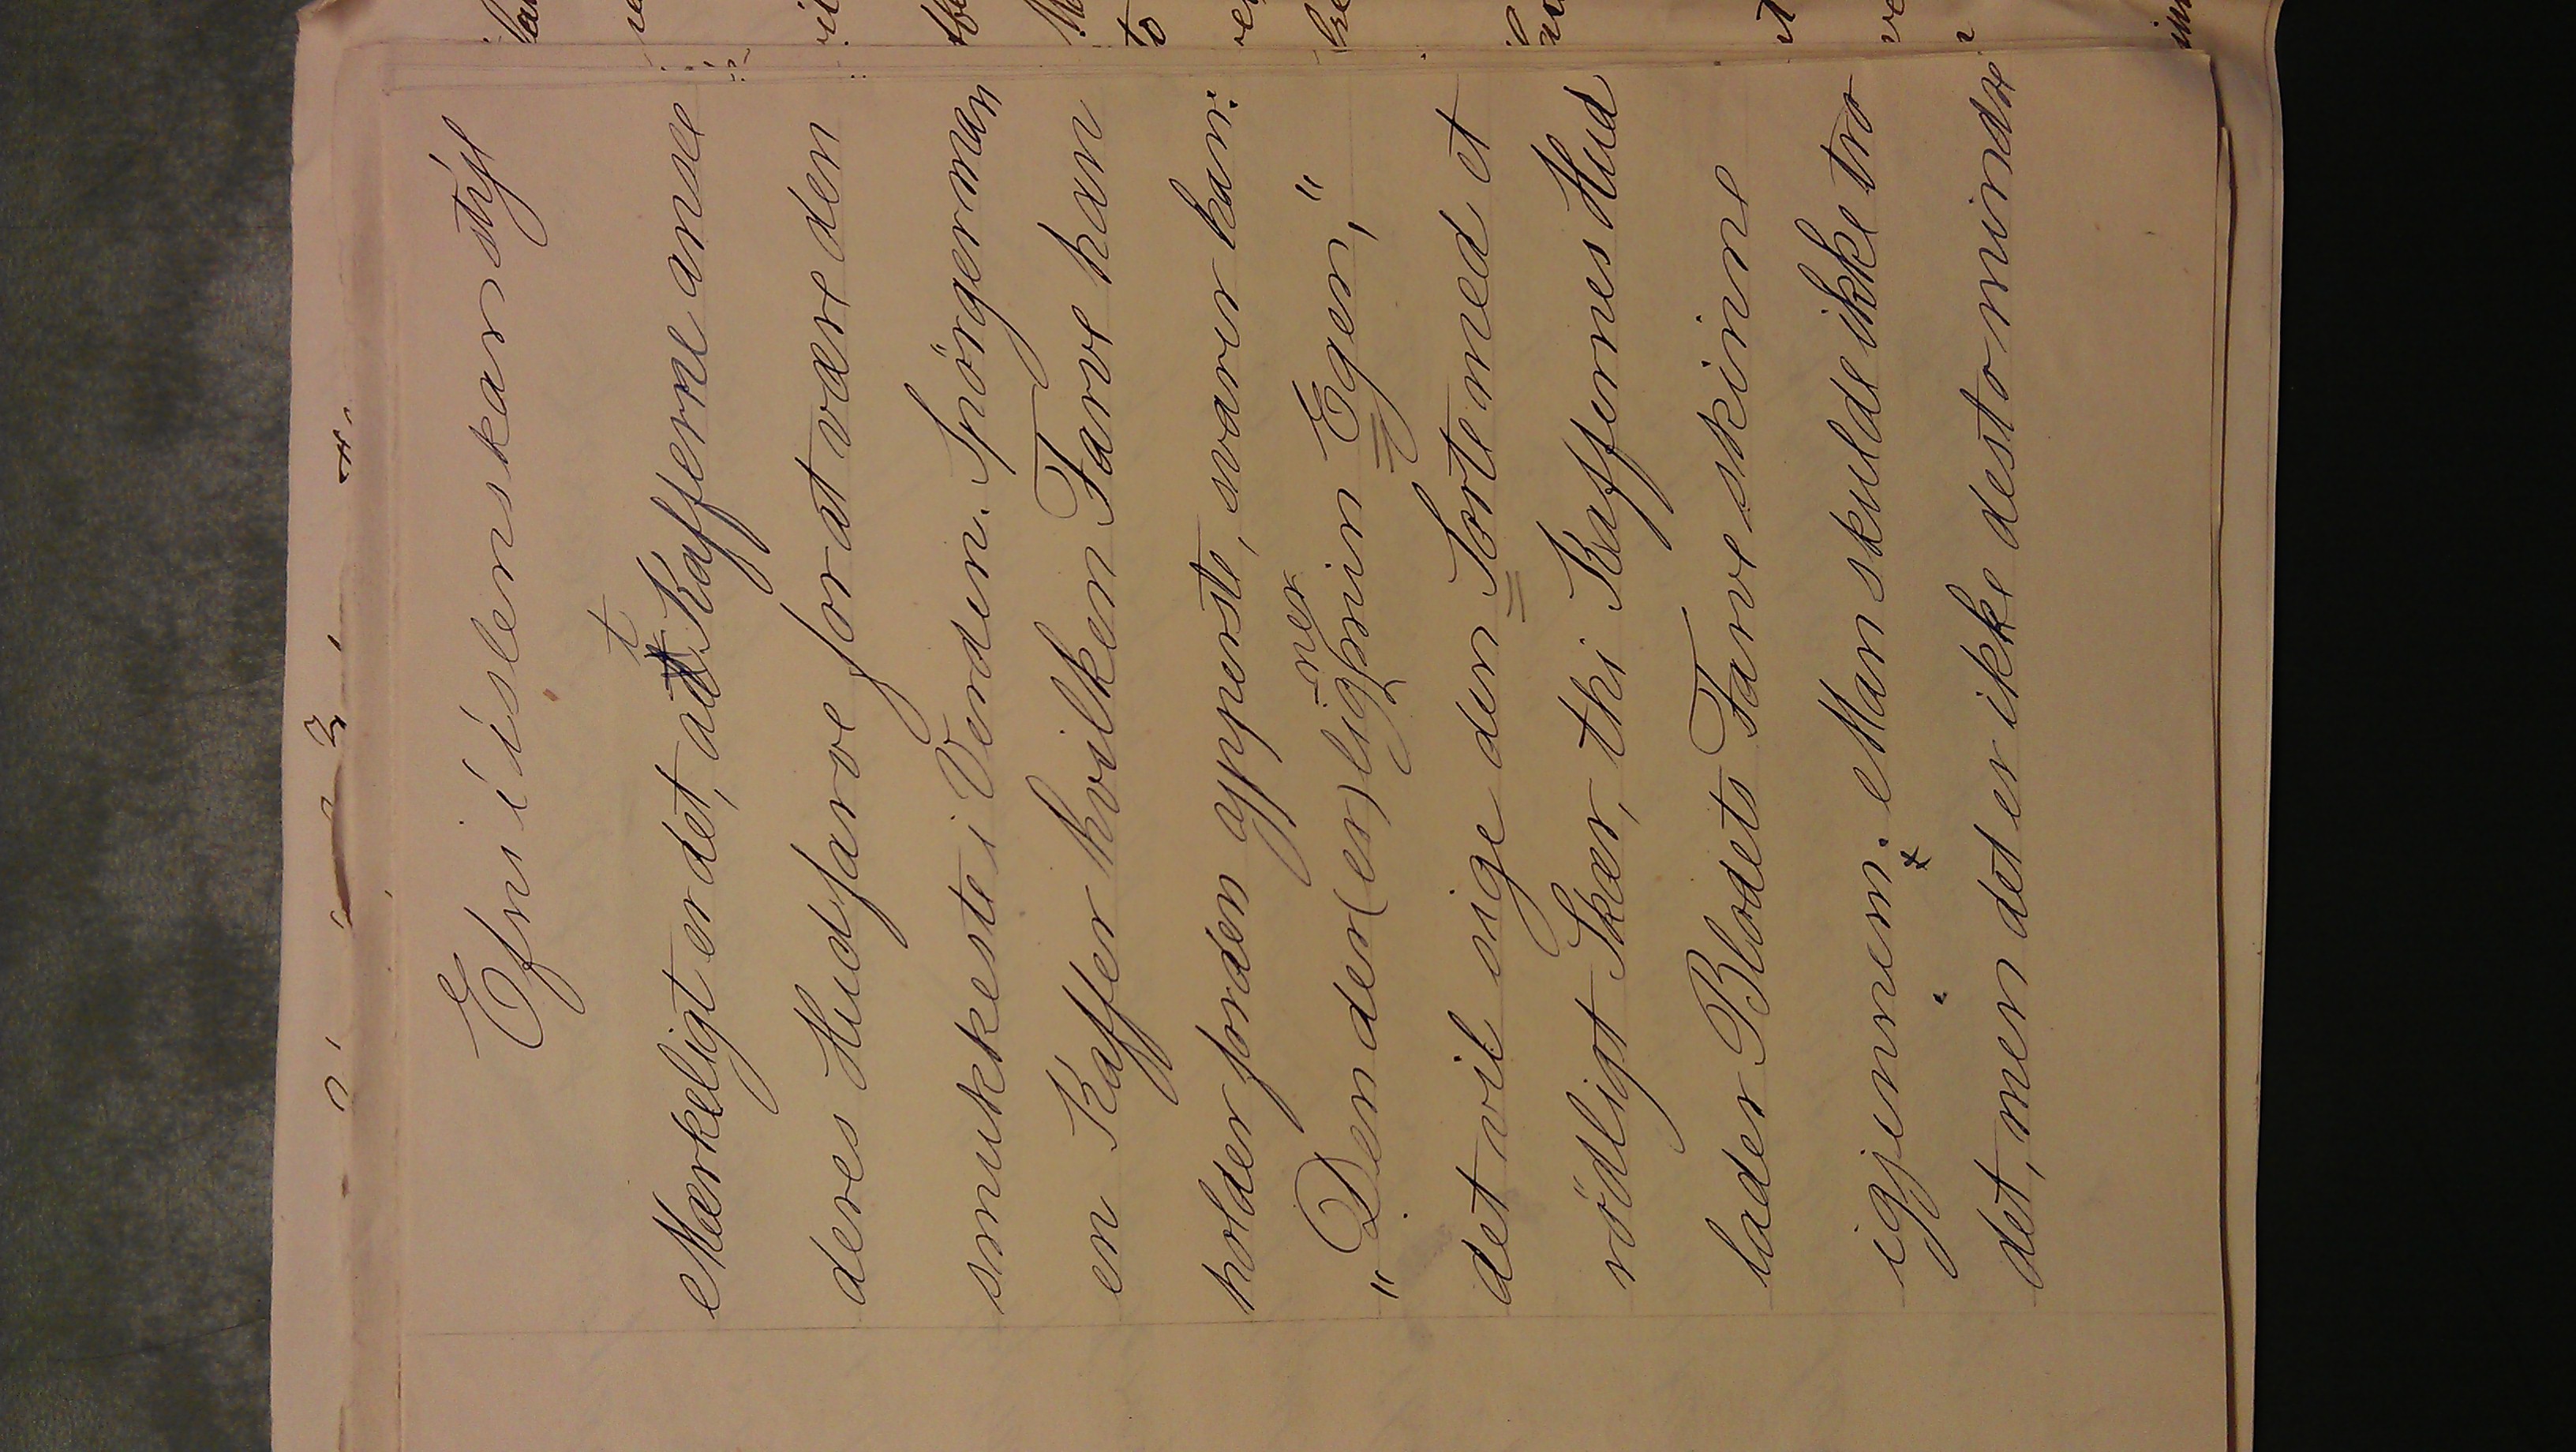 Efni í íslenskan stýl
Mærkeligt er det, at Kafferne anse
deres Hudfarve for at være den
smukkeste i Verden. Spörger man
en Kaffer hvilken Farve han
holder for den ypperste, svarer han:
„Den der (er) ligner min Egen,"
det vil sige den Sorte med et
rödligt Skær, thi Kaffernes Hud
lader Blodets Farve skinne
igjennem. Man skulde ikke tro
det, men det er ikke desto mindre